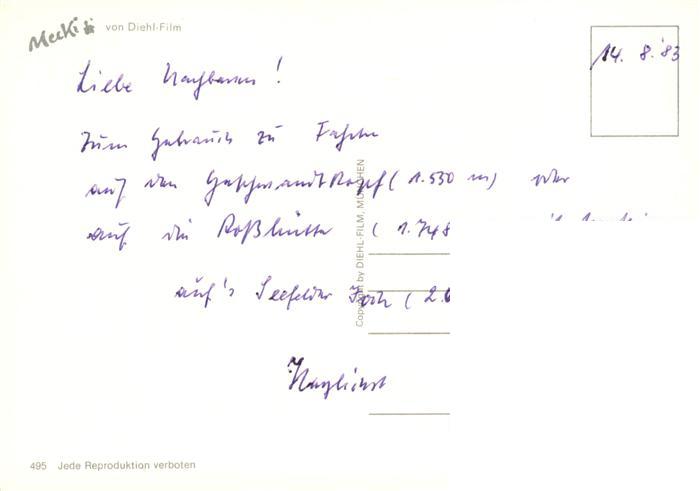 Mecki von Diehl-Film
14. 8. '83
Liebe Nachbarn!
Zum Gebrauch zu Fahrten
auf den Geschwandtkopf (1.530 m) oder
auf die Roßhütte (1.748
auf's Seefelder Joch (2.0
Copyright by DIEHL-FILM, MÜNCHEN
495 Jede Reproduktion verboten